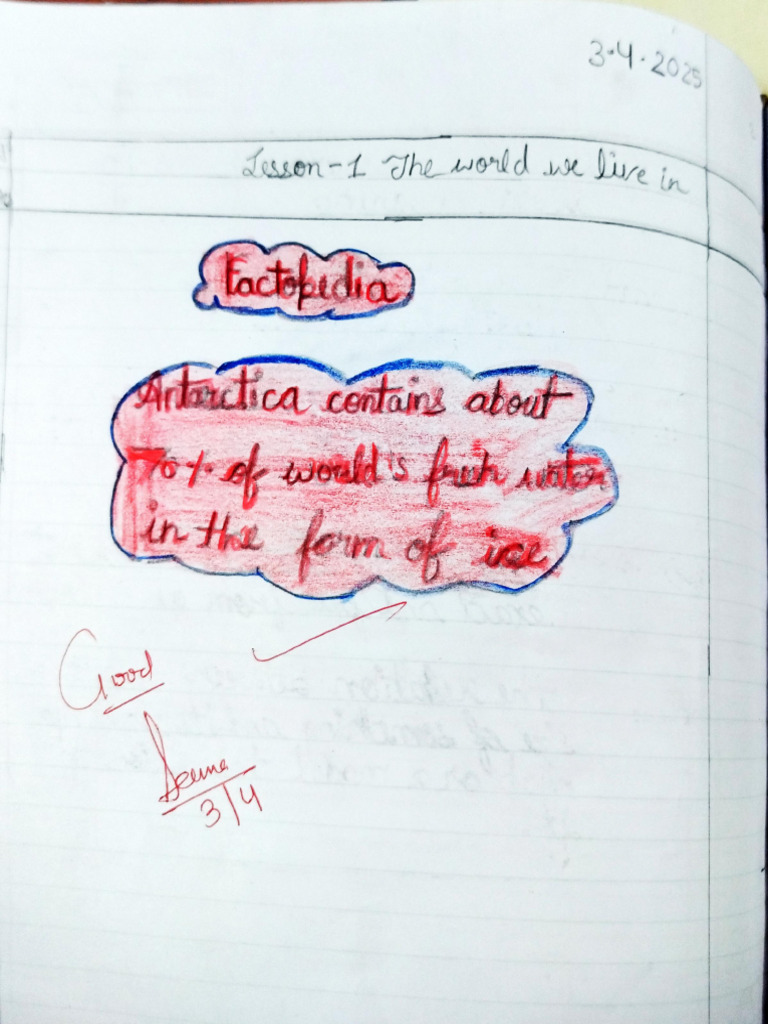 3.4.2025
Lesson-1 The world we live in
Factopedia
Antarctica contains about
70% of world's fresh water
in the form of ice
Good
Seema
3/4